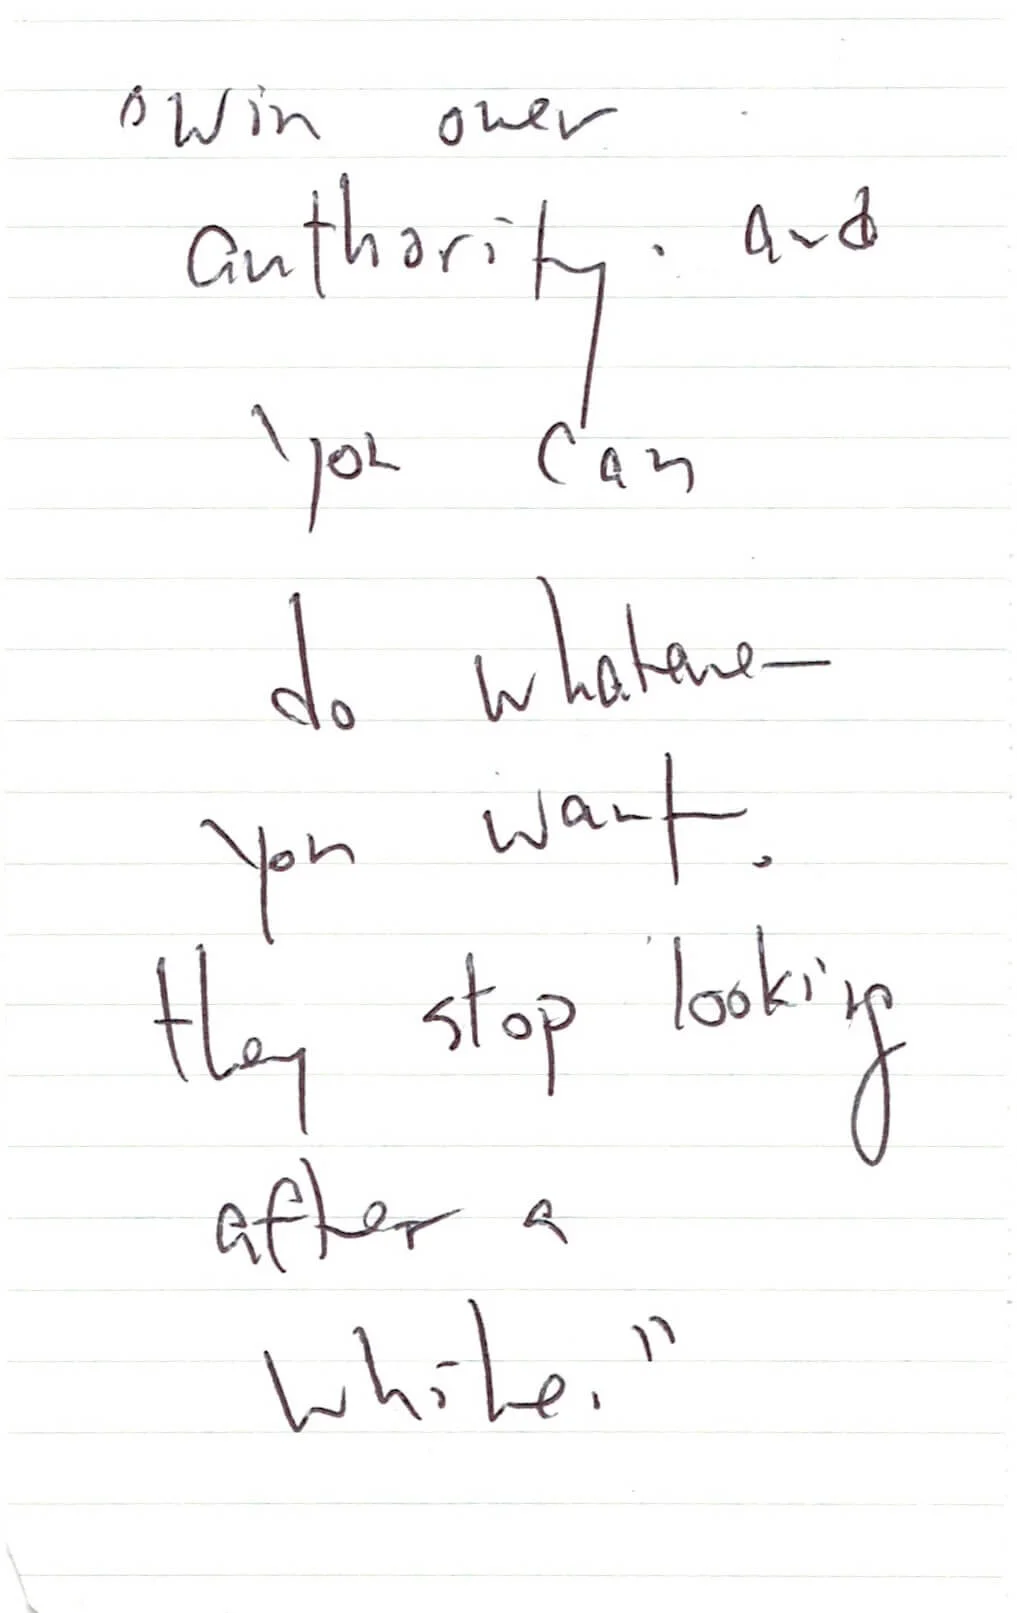 "Win over
authority. and
you can
do whatever
you want.
they stop looking
after a
while."